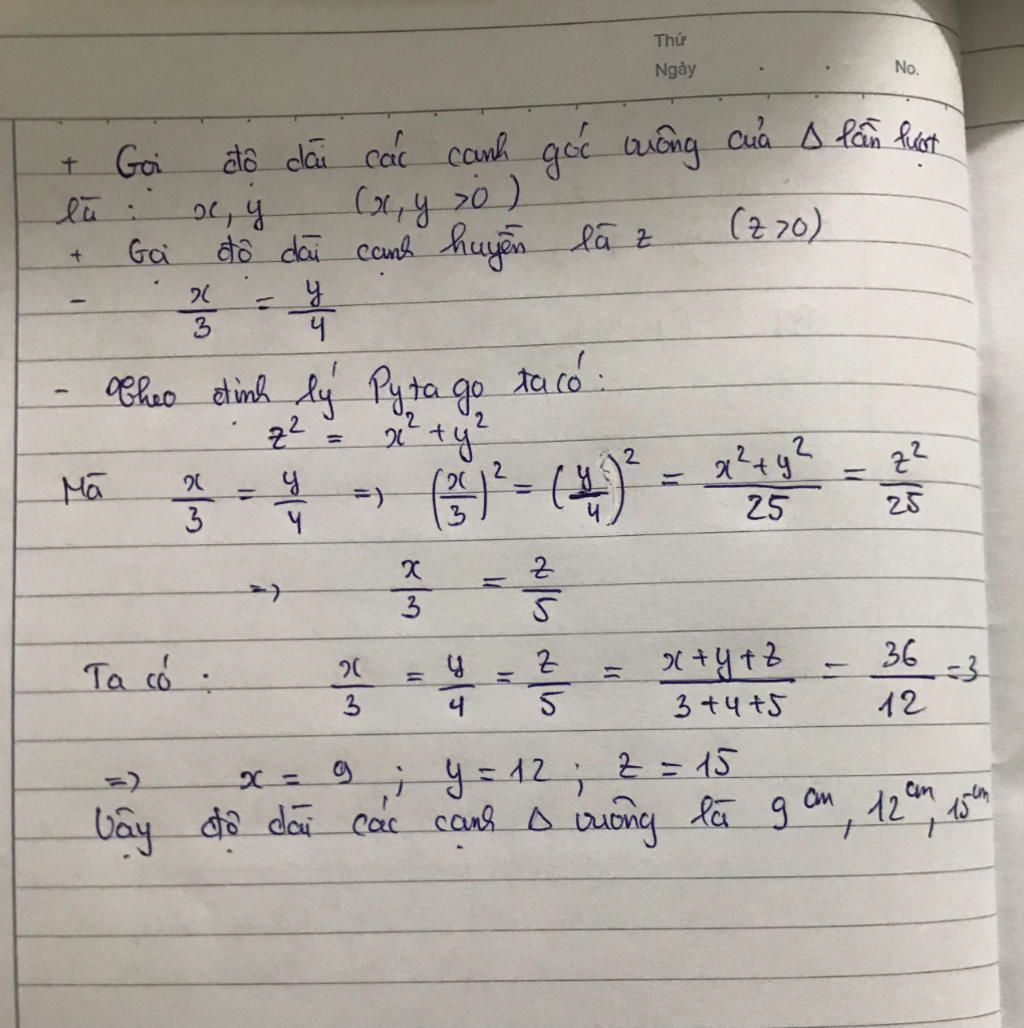 Thứ
Ngày . . No.
+ Gọi độ dài các cạnh góc vuông của Δ lần lượt
là : x, y (x, y >0)
+ Gọi độ dài cạnh huyền là z (z>0)
- x/3 = y/4
- Theo định lý Pytago ta có :
z² = x² + y²
Mà x/3 = y/4 => (x/3)² = (y/4)² = (x² + y²)/25 = z²/25
=> x/3 = z/5
Ta có : x/3 = y/4 = z/5 = (x + y + z)/(3 + 4 + 5) = 36/12 = 3
=> x = 9 ; y = 12 ; z = 15
Vậy độ dài các cạnh Δ vuông là 9 cm, 12 cm, 15 cm